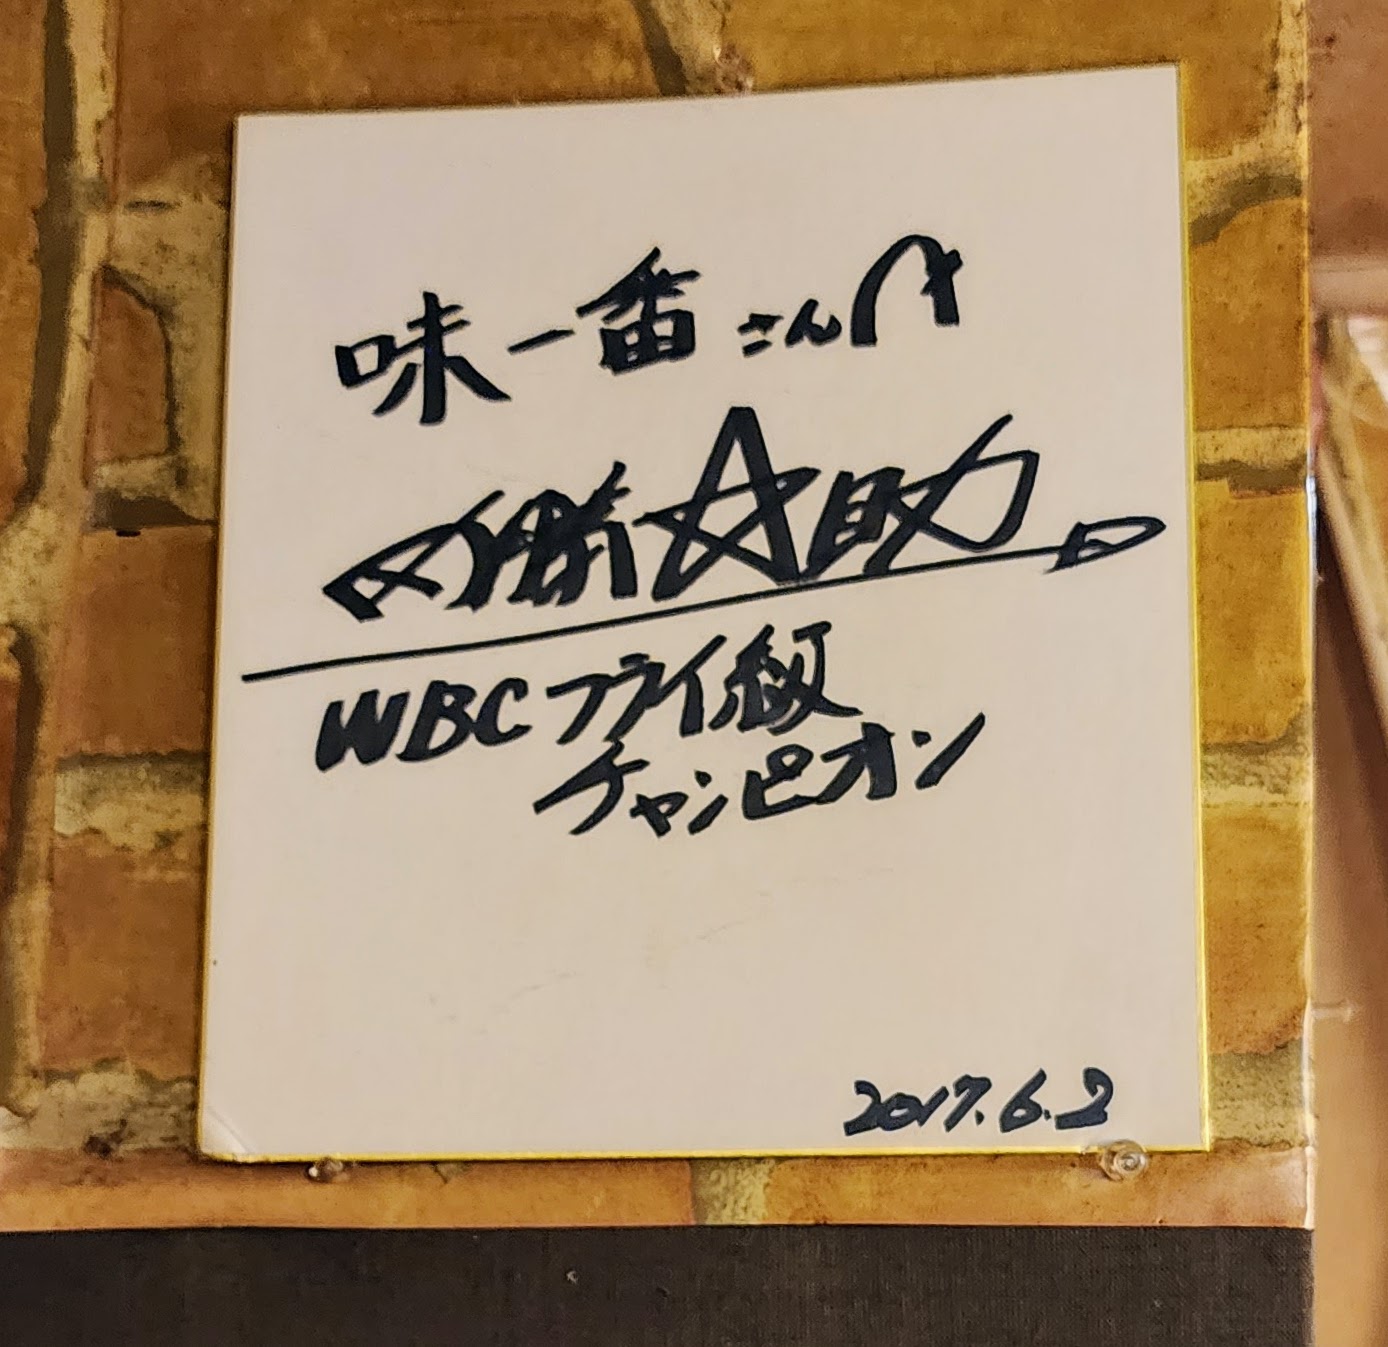 味一番さんへ
内藤大助
WBCフライ級
チャンピオン
2017.6.2